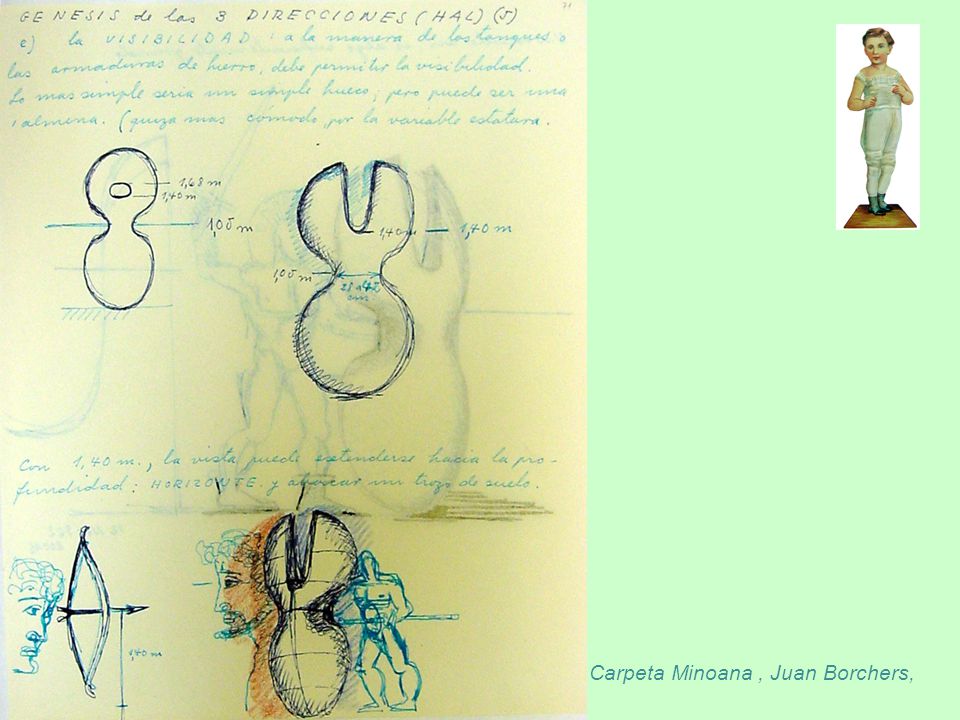 GENESIS de las 3 DIRECCIONES (HAL) (5)
71
e) la VISIBILIDAD: a la manera de los tanques o
las armaduras de hierro, debe permitir la visibilidad.
Lo mas simple seria un simple hueco; pero puede ser una
almena. (quiza mas cómodo, por la variable estatura.
1,68 m
1,40 m
1,05 m
1,40 m
1,40 m
1,05 m
cm.
Con 1,40 m., la vista puede extenderse hacia la pro-
fundidad: HORIZONTE. y abarcar un trozo de suelo.
1,40 m
Carpeta Minoana , Juan Borchers,